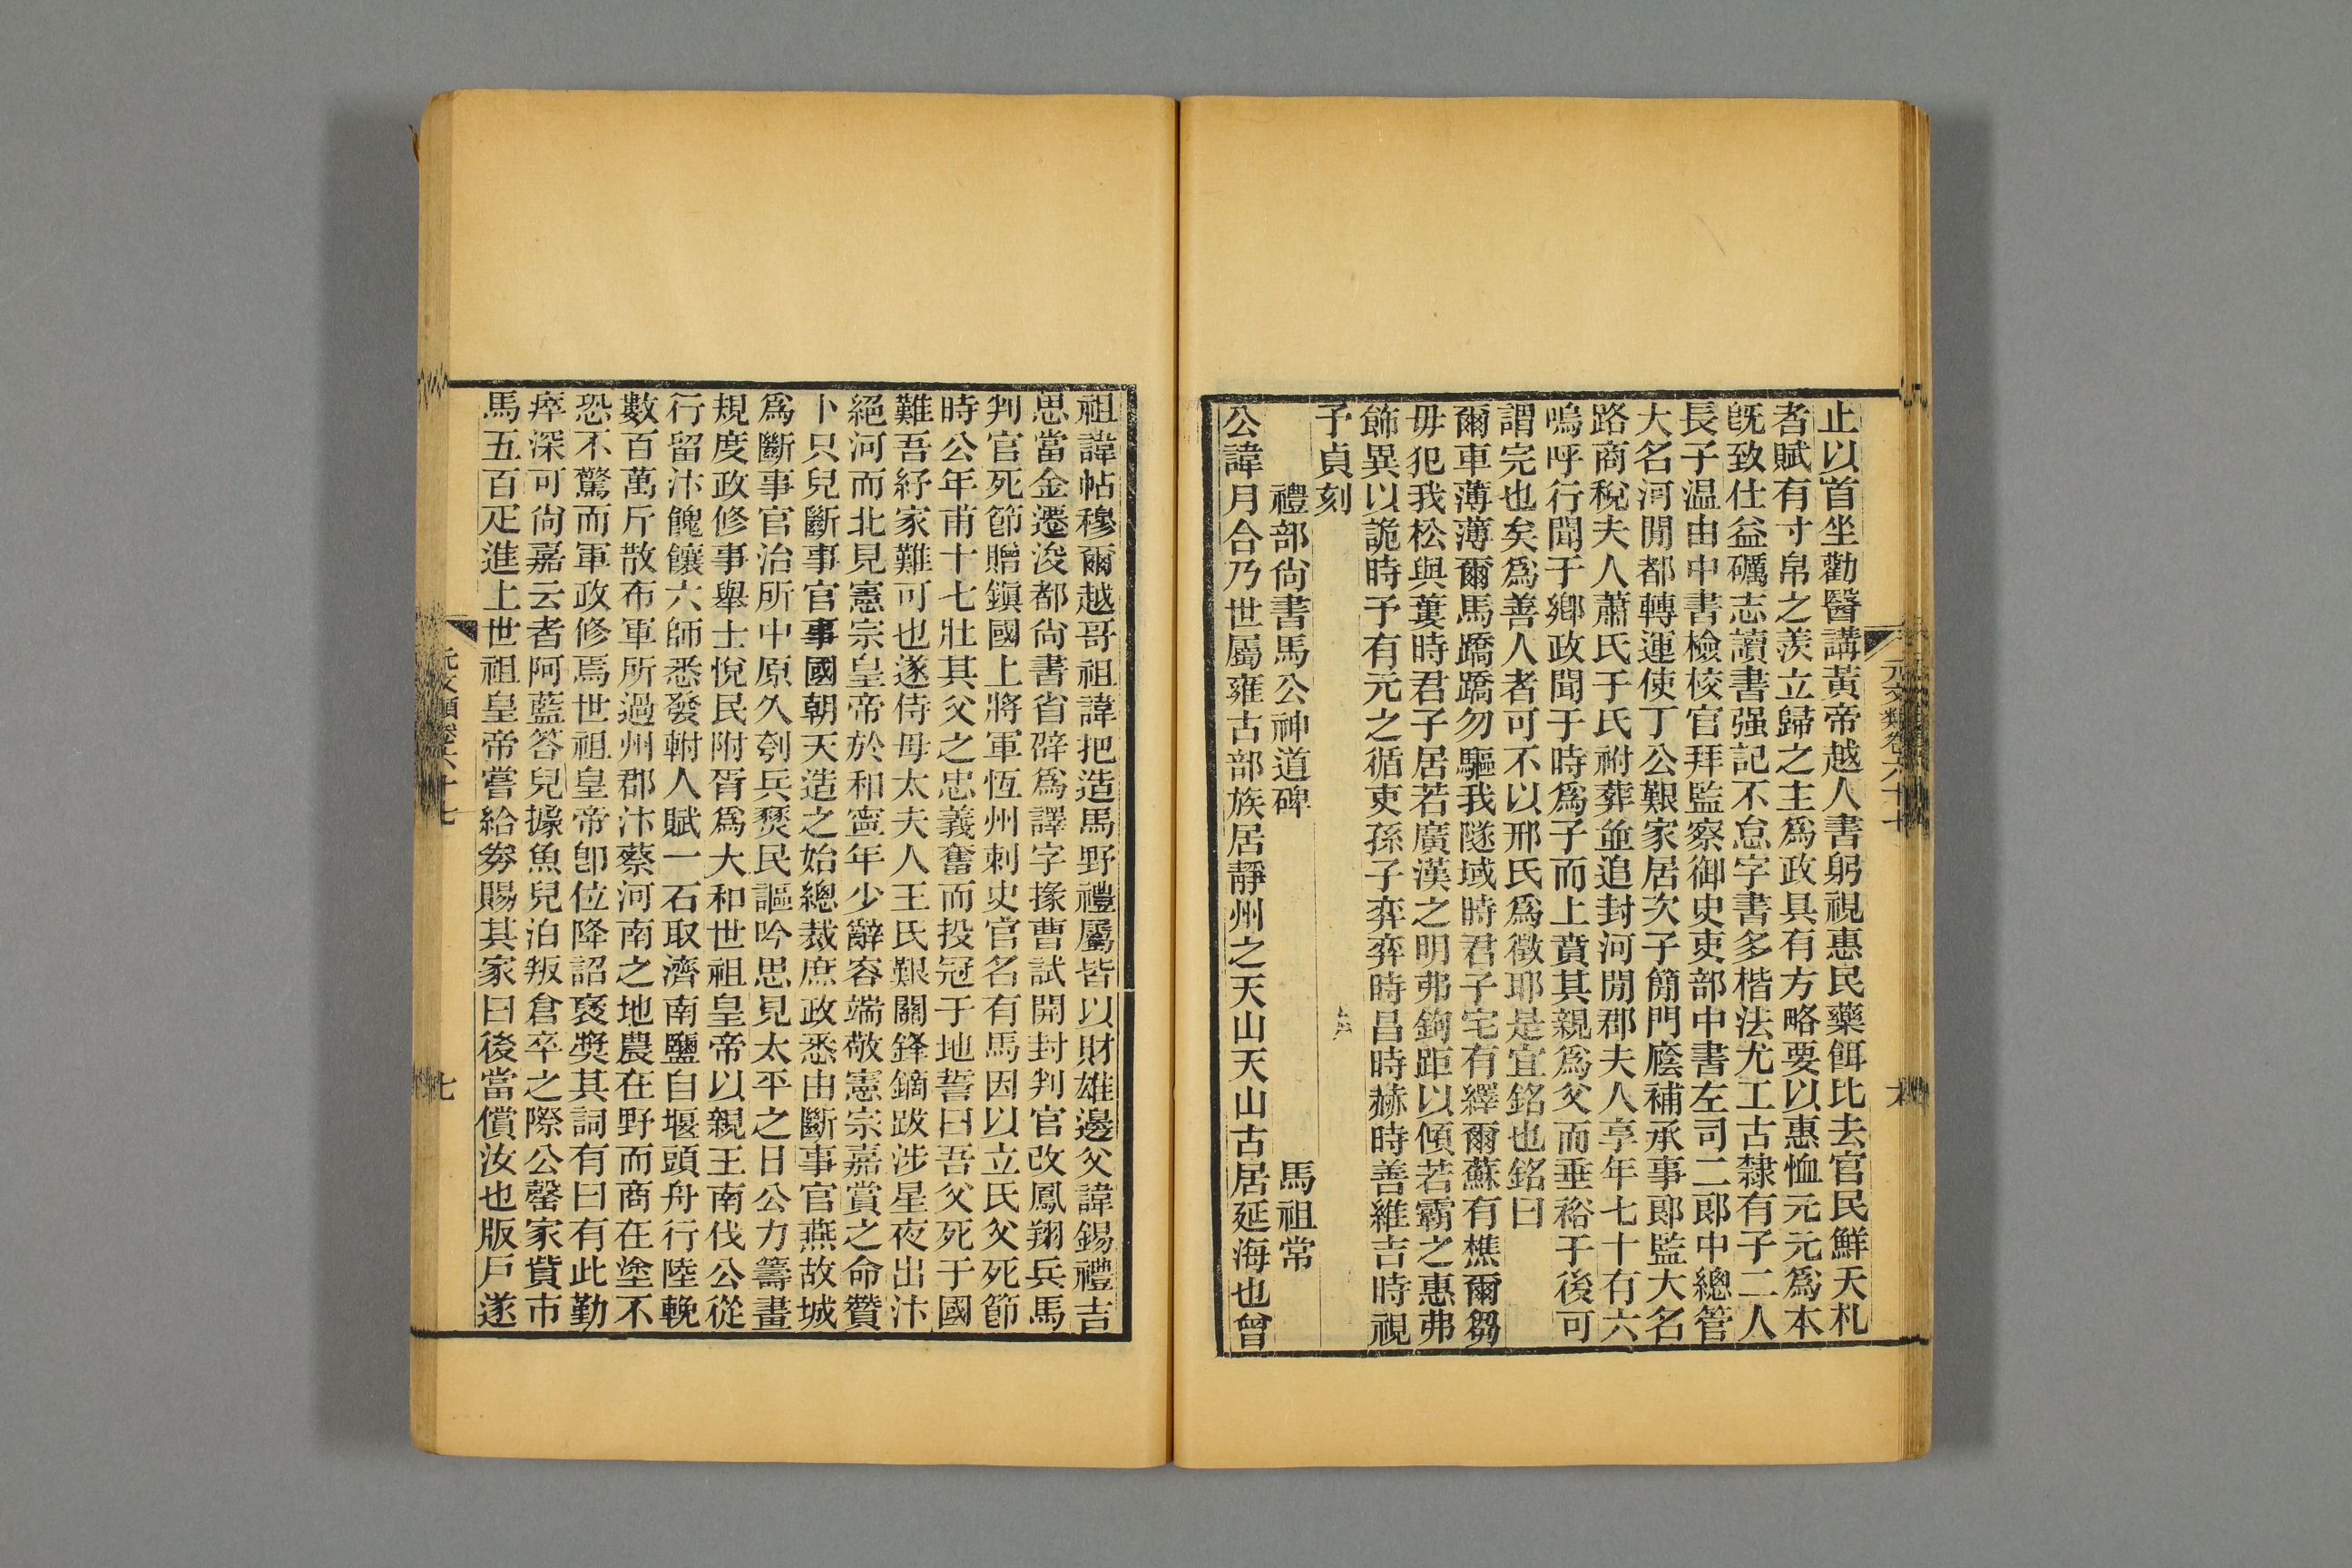 止以首坐勸醫講黃帝越人書躬視惠民藥餌比去官民鮮夭札
者賦有寸帛之羡立歸之主爲政具有方略要以惠恤元元爲本
旣致仕益礪志讀書强記不怠字書多楷法尤工古隸有子二人
長子温由中書檢校官拜監察御史吏部中書左司二郞中總管
大名河閒都轉運使丁公艱家居次子簡門廕補承事郞監大名
路商稅夫人蕭氏于氏祔葬並追封河閒郡夫人享年七十有六
嗚呼行聞于鄕政聞于時爲子而上賁其親爲父而垂裕于後可
謂完也矣爲善人者可不以邢氏爲徵耶是宜銘也銘曰
爾車薄薄爾馬蹻蹻勿驅我隧域時君子宅有繹爾蘇有樵爾芻
毋犯我松與蓃時君子居若廣漢之明弗鉤距以傾若霸之惠弗
飾異以詭時予有元之循吏孫子弈弈時昌時赫時善維吉時視
予貞刻
禮部尙書馬公神道碑 馬祖常
公諱月合乃世屬雍古部族居靜州之天山天山古居延海也曾
元文類卷六十七
六
祖諱帖穆爾越哥祖諱把造馬野禮屬皆以財雄邊父諱錫禮吉
思當金遷浚都尙書省辟爲譯字掾曹試開封判官改鳳翔兵馬
判官死節贈鎭國上將軍恆州刺史官名有馬因以立氏父死節
時公年甫十七壯其父之忠義奮而投冠于地誓曰吾父死于國
難吾紓家難可也遂侍毋太夫人王氏艱關鋒鏑跋涉星夜出汴
絕河而北見憲宗皇帝於和寧年少辭容端敬憲宗嘉賞之命贊
卜只兒斷事官事國朝天造之始總裁庶政悉由斷事官燕故城
爲斷事官治所中原久刳兵燹民謳吟思見太平之日公力籌畫
規度政修事舉士悅民附胥爲大和世祖皇帝以親王南伐公從
行留汴餽饟六師悉發軵人賦一石取濟南鹽自堰頭舟行陸輓
數百萬斤散布軍所過州郡汴蔡河南之地農在野而商在塗不
恐不驚而軍政修焉世祖皇帝卽位降詔襃奬其詞有曰有此勤
瘁深可尙嘉云者阿藍答兒據魚兒泊叛倉卒之際公罄家貲市
馬五百疋進上世祖皇帝嘗給劵賜其家曰後當償汝也版戶遂
元文類卷六十七
七